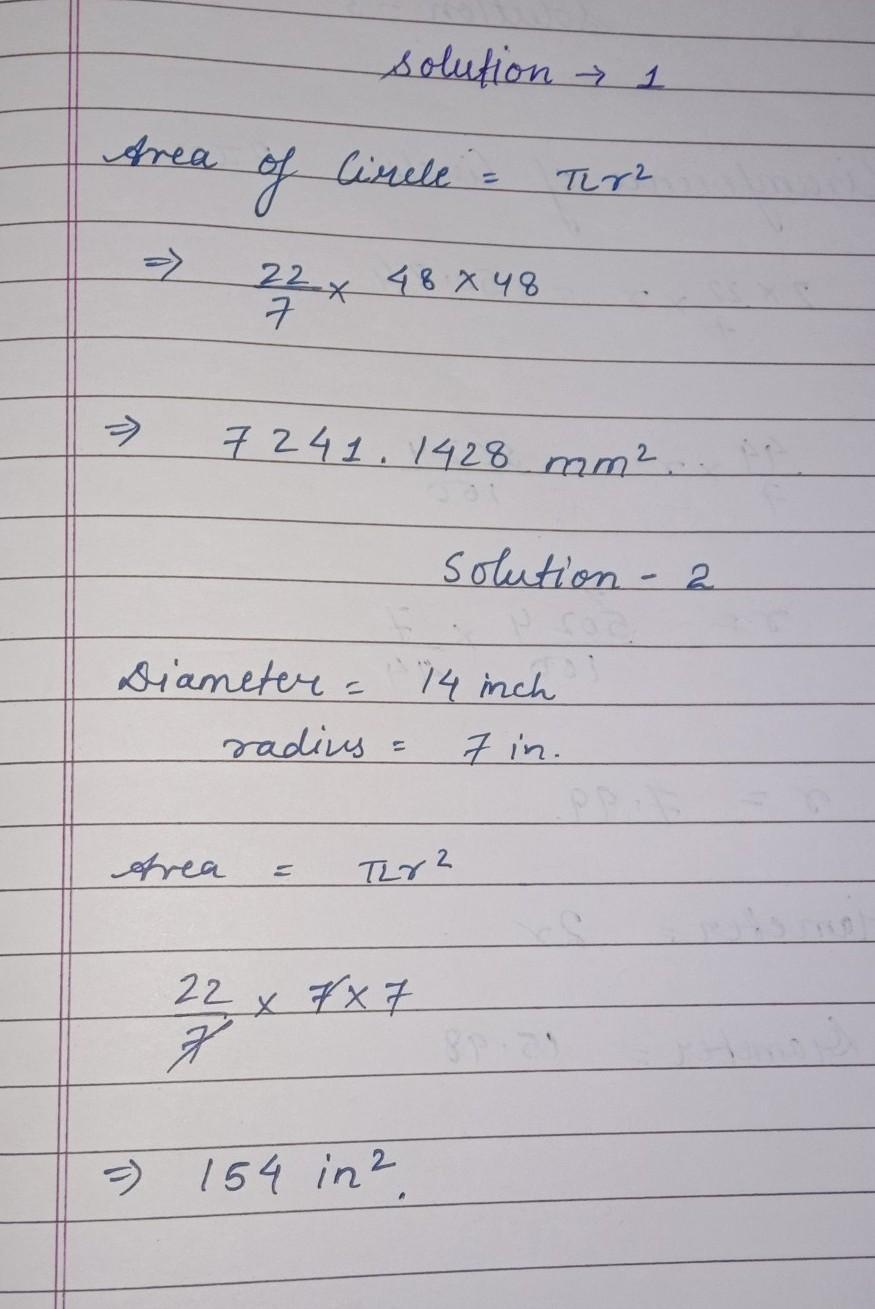 Solution → 1
Area of Circle = πr²
⇒ 22/7 × 48 × 48
⇒ 7241.1428 mm²..
Solution - 2
Diameter = 14 inch
radius = 7 in.
Area = πr²
22/7 × 7 × 7
⇒ 154 in².